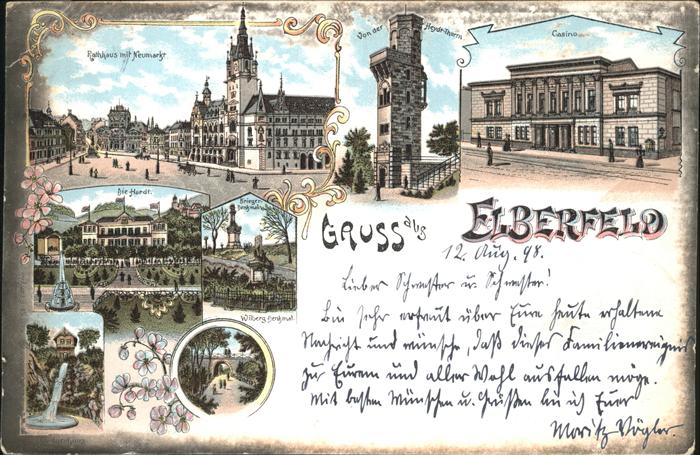 Rathhaus mit Neumarkt
Von der Heydt-Thurm
Casino
Die Hardt.
Krieger-
Denkmal
Wilberg-Denkmal.
GRUSS aus ELBERFELD
12. Aug. 98.
Lieber Schwester!
Bin sehr erfreut über Eure heute erhaltene
Nachricht und wünsche, daß dieses Familienereignis
zu Eurem und aller Wohl ausfallen möge.
Mit besten Wünschen u. Grüßen bin ich Euer
Moritz Vögler.